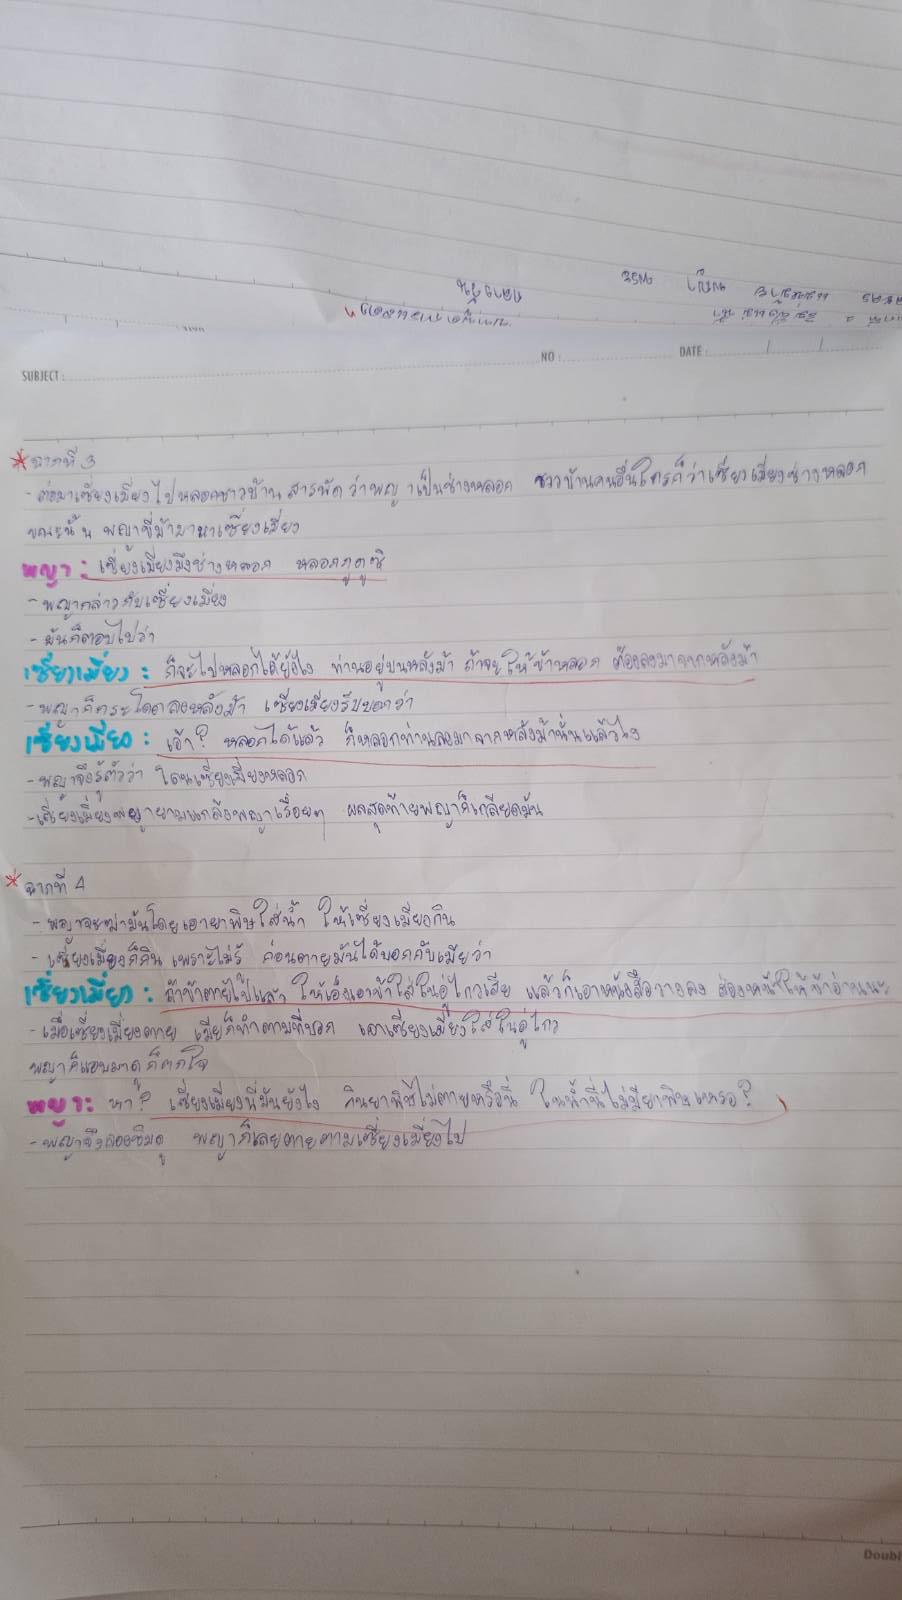 SUBJECT : NO : DATE :
* ฉากที่ 3
- ต่อมาเซี่ยงเมี่ยงไปหลอกชาวบ้าน สารพัด ว่าพญาเป็นช่างหลอก ชาวบ้านคนอื่นใครก็ว่าเซี่ยงเมี่ยงช่างหลอก
ขณะนั้น พญาขี่ม้ามาหาเซี่ยงเมี่ยง
พญา : เซี่ยงเมี่ยงมึงช่างหลอก หลอกกูดูซิ
- พญากล่าวกับเซี่ยงเมี่ยง
- มันก็ตอบไปว่า
เซี่ยงเมี่ยง : ก็จะไปหลอกได้ยังไง ท่านอยู่บนหลังม้า ถ้าจะให้ข้าหลอก ต้องลงมาจากหลังม้า
- พญาก็กระโดดลงหลังม้า เซี่ยงเมี่ยงรีบบอกว่า
เซี่ยงเมี่ยง : เอ้า? หลอกได้แล้ว ก็หลอกท่านลงมาจากหลังม้านั่นแล้วไง
- พญาจึงรู้ตัวว่า โดนเซี่ยงเมี่ยงหลอก
- เซี่ยงเมี่ยงพยายามแกล้งพญาเรื่อยๆ ผลสุดท้ายพญาก็เกลียดมัน
* ฉากที่ 4
- พญาจะฆ่ามันโดยเอายาพิษใส่น้ำ ให้เซี่ยงเมี่ยงกิน
- เซี่ยงเมี่ยงก็กิน เพราะไม่รู้ ก่อนตายมันได้บอกกับเมียว่า
เซี่ยงเมี่ยง : ถ้าข้าตายไปแล้ว ให้เอ็งเอาข้าใส่ในอู่ไกวเสีย แล้วก็เอาหนังสือวางลง ส่องหน้าให้ข้าอ่านนะ
- เมื่อเซี่ยงเมี่ยงตาย เมียก็ทำตามที่บอก เอาเซี่ยงเมี่ยงใส่ในอู่ไกว
พญาก็แอบมาดู ก็ตกใจ
พญา : หา? เซี่ยงเมี่ยงนี่มันยังไง กินยาพิษไม่ตายหรือนี่ ในน้ำนี่ไม่มียาพิษเหรอ?
- พญาจึงลองชิมดู พญาก็เลยตายตามเซี่ยงเมี่ยงไป
Doubl